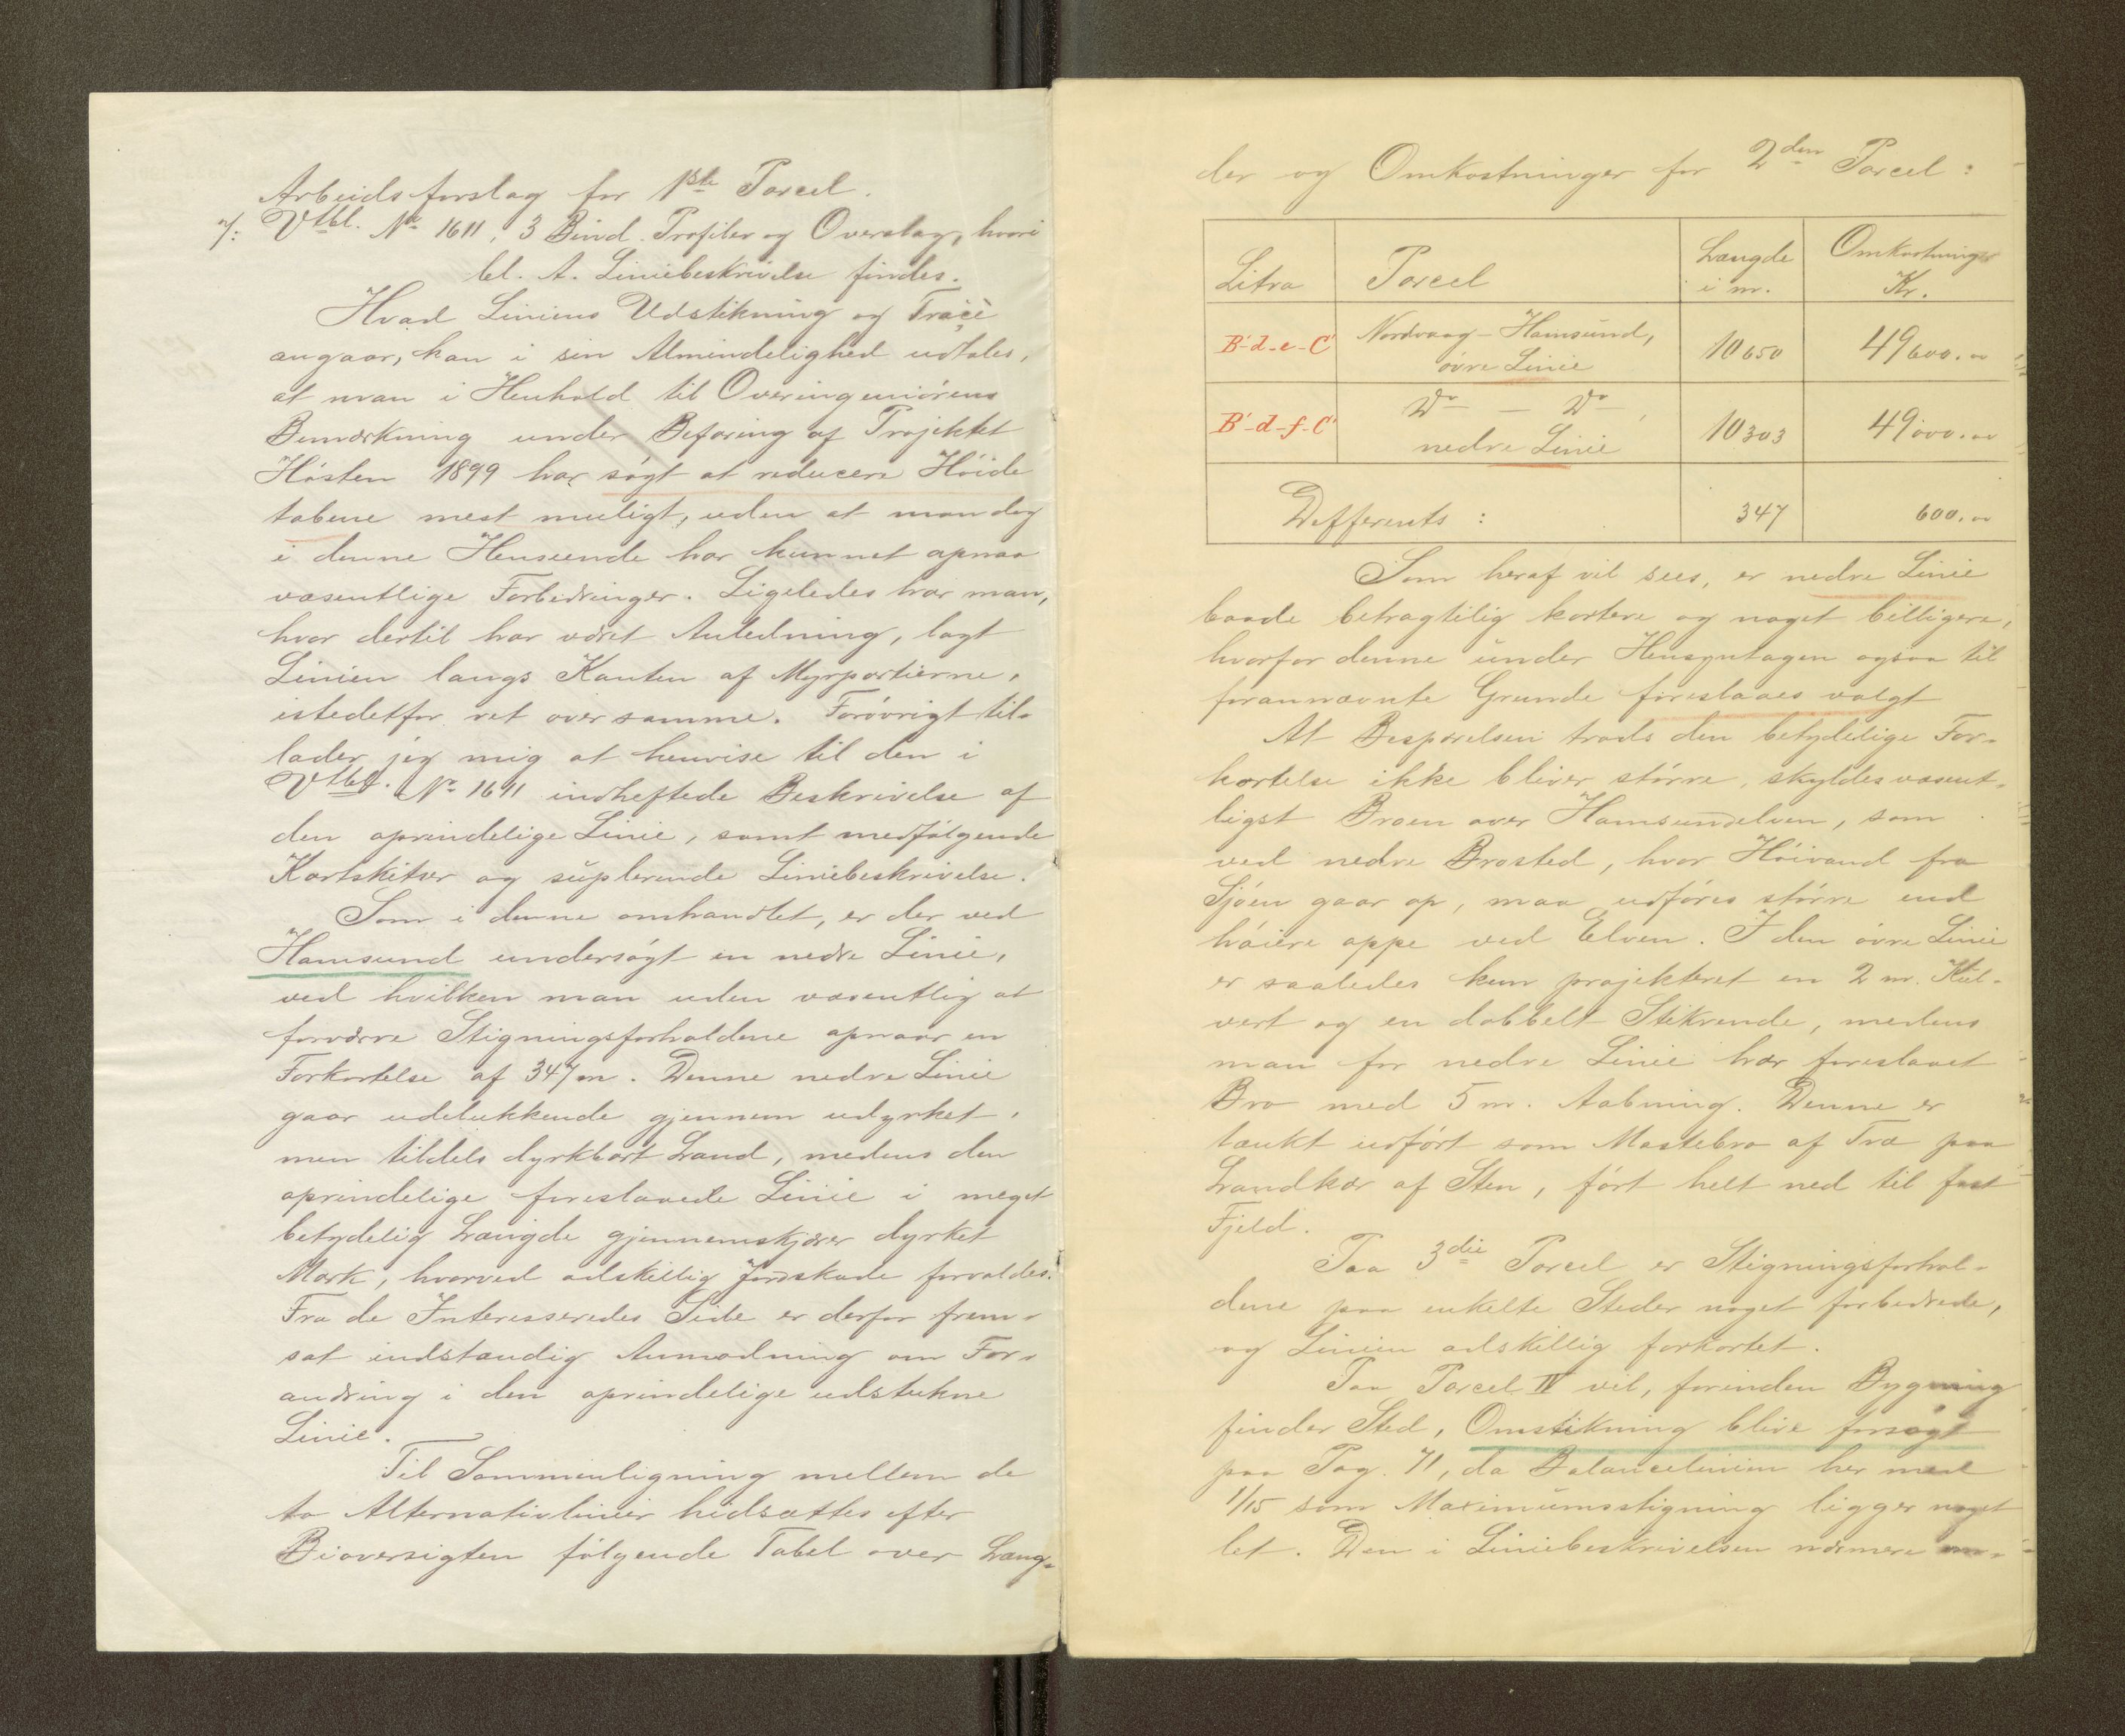 Arbeidsforslag for 1ste Parcel.
Vtbl. No 1611, 3 Bind Profiler og Overslag, hvori
bl. A. Liniebeskrivelse findes.
Hvad Liniens Udstikning og Tracè
angaar, kan i sin Almindelighed udtales,
at man i Henhold til Overingeniørens
Bemærkning under Befaring af Projektet
Høsten 1899 har søgt at reducere Høide
tabene mest muligt, uden at man dog
i denne Henseende har kunnet opnaa
væsentlige Forbedringer. Ligeledes har man,
hvor dertil har været Anledning, lagt
Linien langs Kanten af Myrpartierne,
istedetfor ret over samme. Forøvrigt til-
lader jeg mig at henvise til den i
Vtbl. No 1611 indheftede Beskrivelse af
den oprindelige Linie, samt medfølgende
Kartskitser og suplerende Liniebeskrivelse.
Som i denne omhandlet, er der ved
Hamsund undersøgt en nedre Linie,
ved hvilken man uden væsentlig at
forværre Stigningsforholdene opnaar en
Forkortelse af 347 m. Denne nedre Linie
gaar udelukkende gjennem udyrket,
men tildels dyrkbart Land, medens den
oprindelige foreslaaede Linie i meget
betydelig Længde gjennemskjærer dyrket
Mark, hvorved adskillig Jordskade forvoldes.
Fra de Interesseredes Side er derfor frem-
sat indstændig Anmodning om For-
andring i den oprindelige udstukne
Linie.
Til Sammenligning mellem de
to Alternativlinier hidsættes efter
Bioversigten følgende Tabel over Læng-
der og Omkostninger for 2den Parcel:
Litra Parcel Længde i m. Omkostninger Kr.
B'-d-e-C' Nordvaag-Hamsund, øvre Linie 10650 49600.00
B'-d-f-C' Do - Do, nedre Linie 10303 49000.00
Differents: 347 600.00
Som heraf vil sees, er nedre Linie
baade betragtelig kortere og noget billigere,
hvorfor denne under Hensyntagen ogsaa til
forannævnte Grunde foreslaaes valgt
At Besparelsen trods den betydelige For-
kortelse ikke bliver større, skyldes væsent-
ligst Broen over Hamsundelven, som
ved nedre Brosted, hvor Høivand fra
Sjøen gaar op, maa udføres større end
høiere oppe ved Elven. I den øvre Linie
er saaledes kun projekteret en 2 m. Kul-
vert og en dobbelt Stikrende, medens
man for nedre Linie har foreslaaet
Bro med 5 m. Aabning. Denne er
tænkt udført som Mastebro af Træ paa
Landkar af Sten, ført helt ned til fast
Fjeld.
Paa 3die Parcel er Stigningsforhol-
dene paa enkelte Steder noget forbedrede,
og Linien adskillig forkortet.
Paa Parcel IV vil, forinden Bygning
finder Sted, Omstikning blive forsøgt
paa Pag. 71, da Balancelinien her med
1/15 som Maximumsstigning ligger noget
let. Den i Liniebeskrivelsen nærmere om-